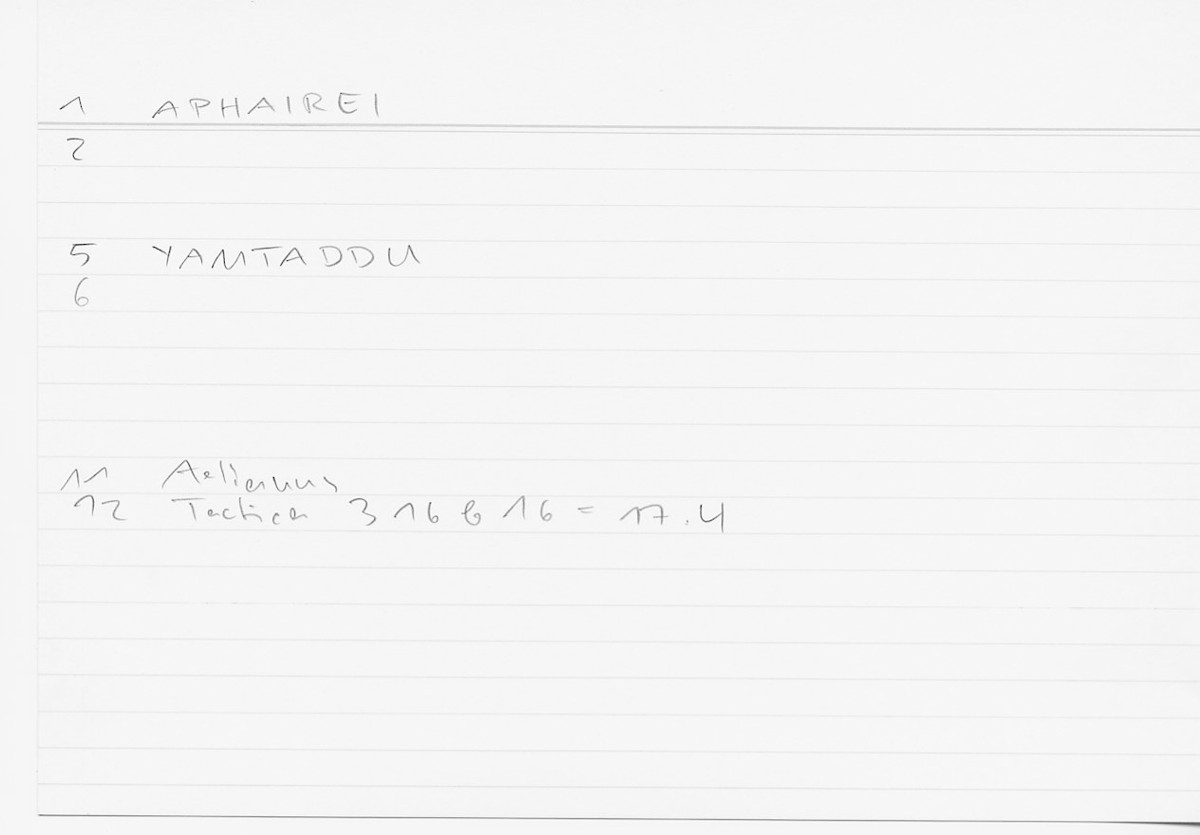 1 APHAIREI
2
5 YAMTADDU
6
11 Aelianus
12 Tactica 3 16 b 16 = 17.4